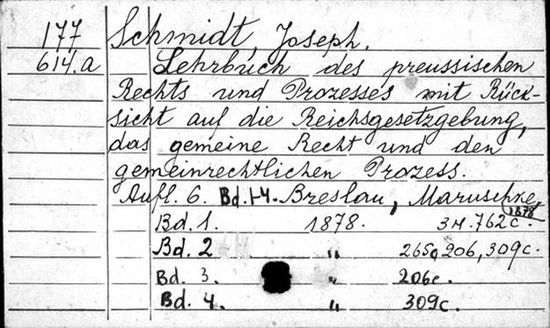 177 Schmidt, Joseph.
614.a Lehrbuch des preussischen
Rechts und Prozesses mit Rück-
sicht auf die Reichsgesetzgebung,
das gemeine Recht und den
gemeinrechtlichen Prozess.
Aufl. 6. Bd. 1-4. Breslau, Maruschke,
1878
Bd. 1. 1878. 3н.762c.
Bd. 2 " 265, 206, 309c.
Bd. 3. " 206c.
Bd. 4. " 309c.